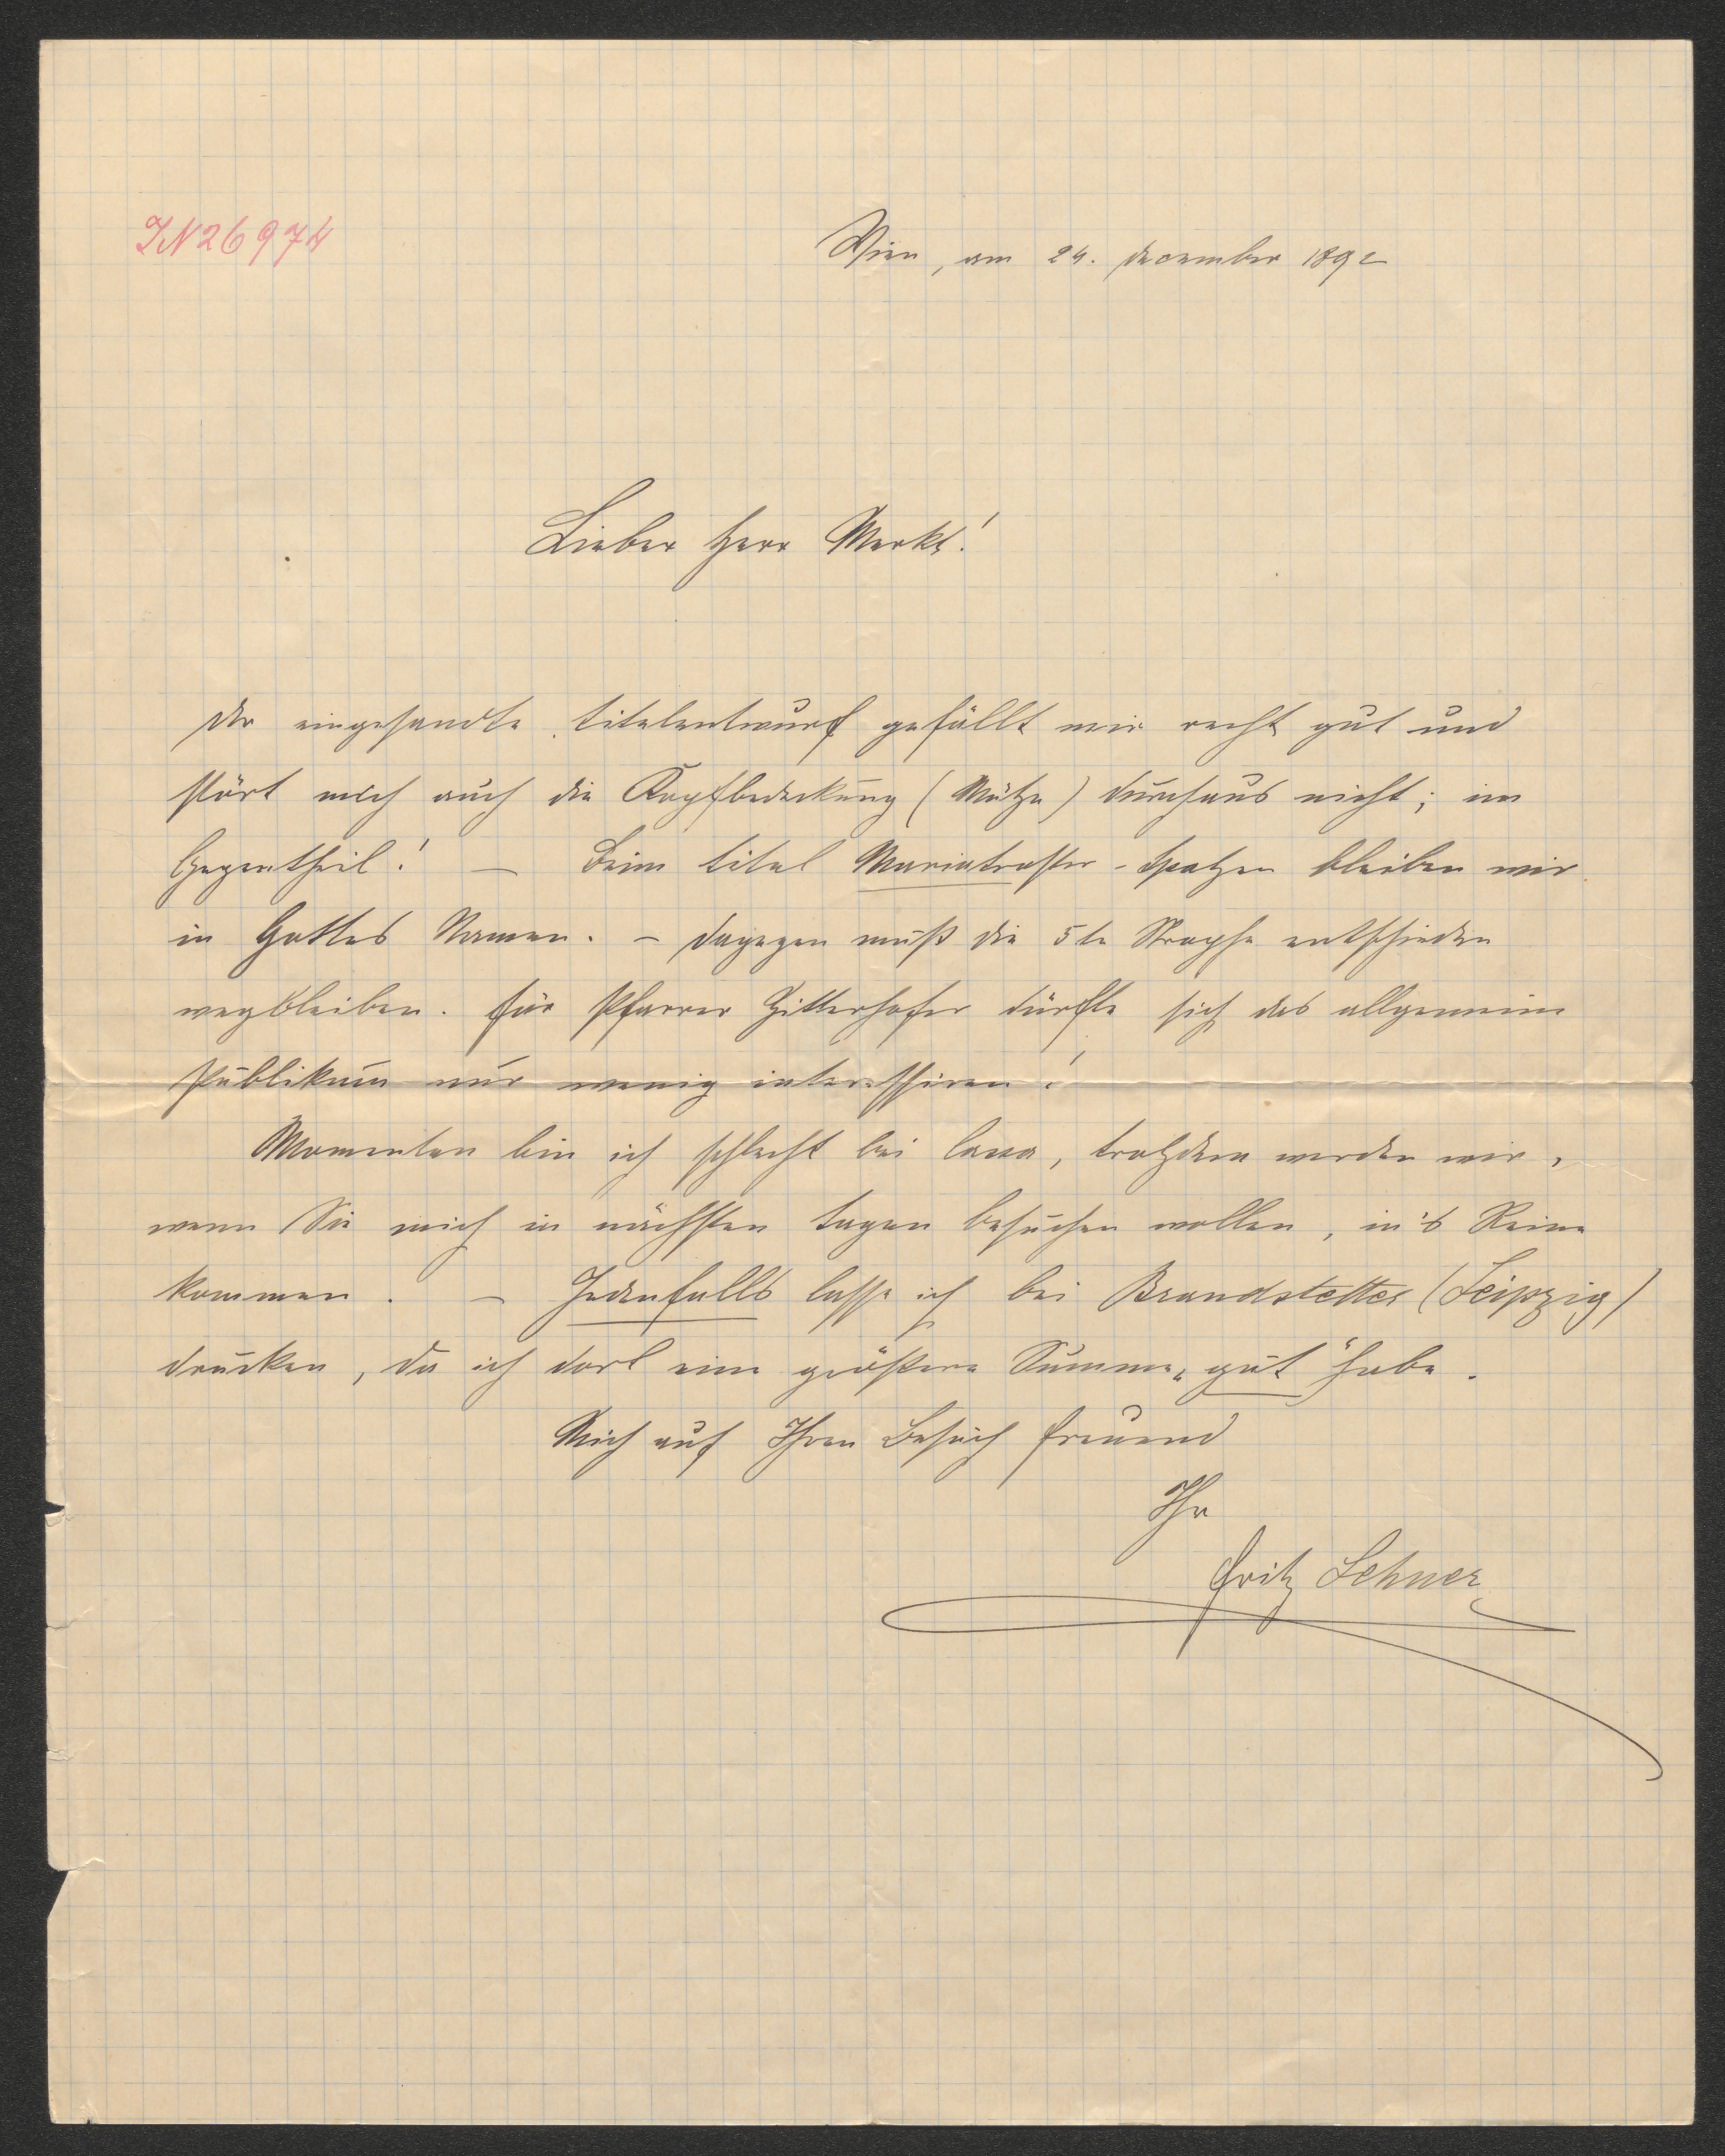 IN 26974
Wien, am 24. December 1892
Lieber Herr Merkt!
Der eingesandte Titelentwurf gefällt mir recht gut und
stört mich auch die Kopfbedeckung (Mütze) durchaus nicht; im
Gegentheil! — Beim Titel Mariatroster-Spatzen bleiben wir
in Gottes Namen. – Dagegen muß die 5te Strophe entschieden
wegbleiben. Für Pfarrer Zitterhofer dürfte sich das allgemeine
Publikum nur wenig interessiren!
Momentan bin ich schlecht bei Cassa, trotzdem werden wir,
wenn Sie mich in nächsten Tagen besuchen wollen, in's Reine
kommen. – Jedenfalls lasse ich bei Brandstetter (Leipzig)
drucken, da ich dort eine größere Summe „gut" habe.
Mich auf Ihren Besuch freuend
Ihr
Fritz Lehner